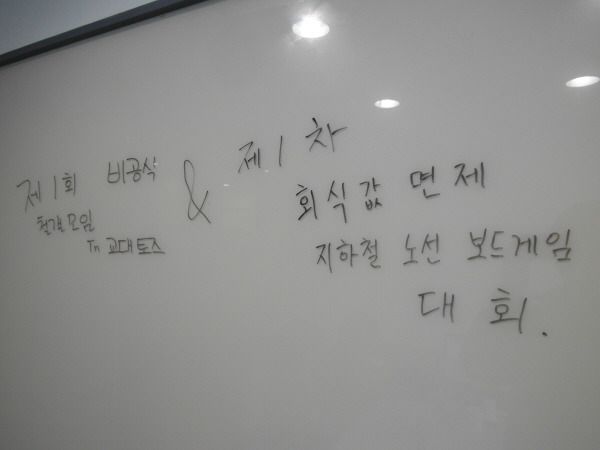 제1회 비공식
철갤모임
In 교대토즈
&
제1차
회식값 면제
지하철 노선 보드게임
대회.